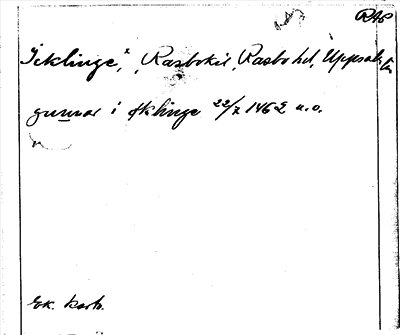 RAP
Icklinge, Rasbokil, Rasbo hd, Uppsala län
gunnar i Iklinge 22/7 1462 u.o.
Ek. kart.